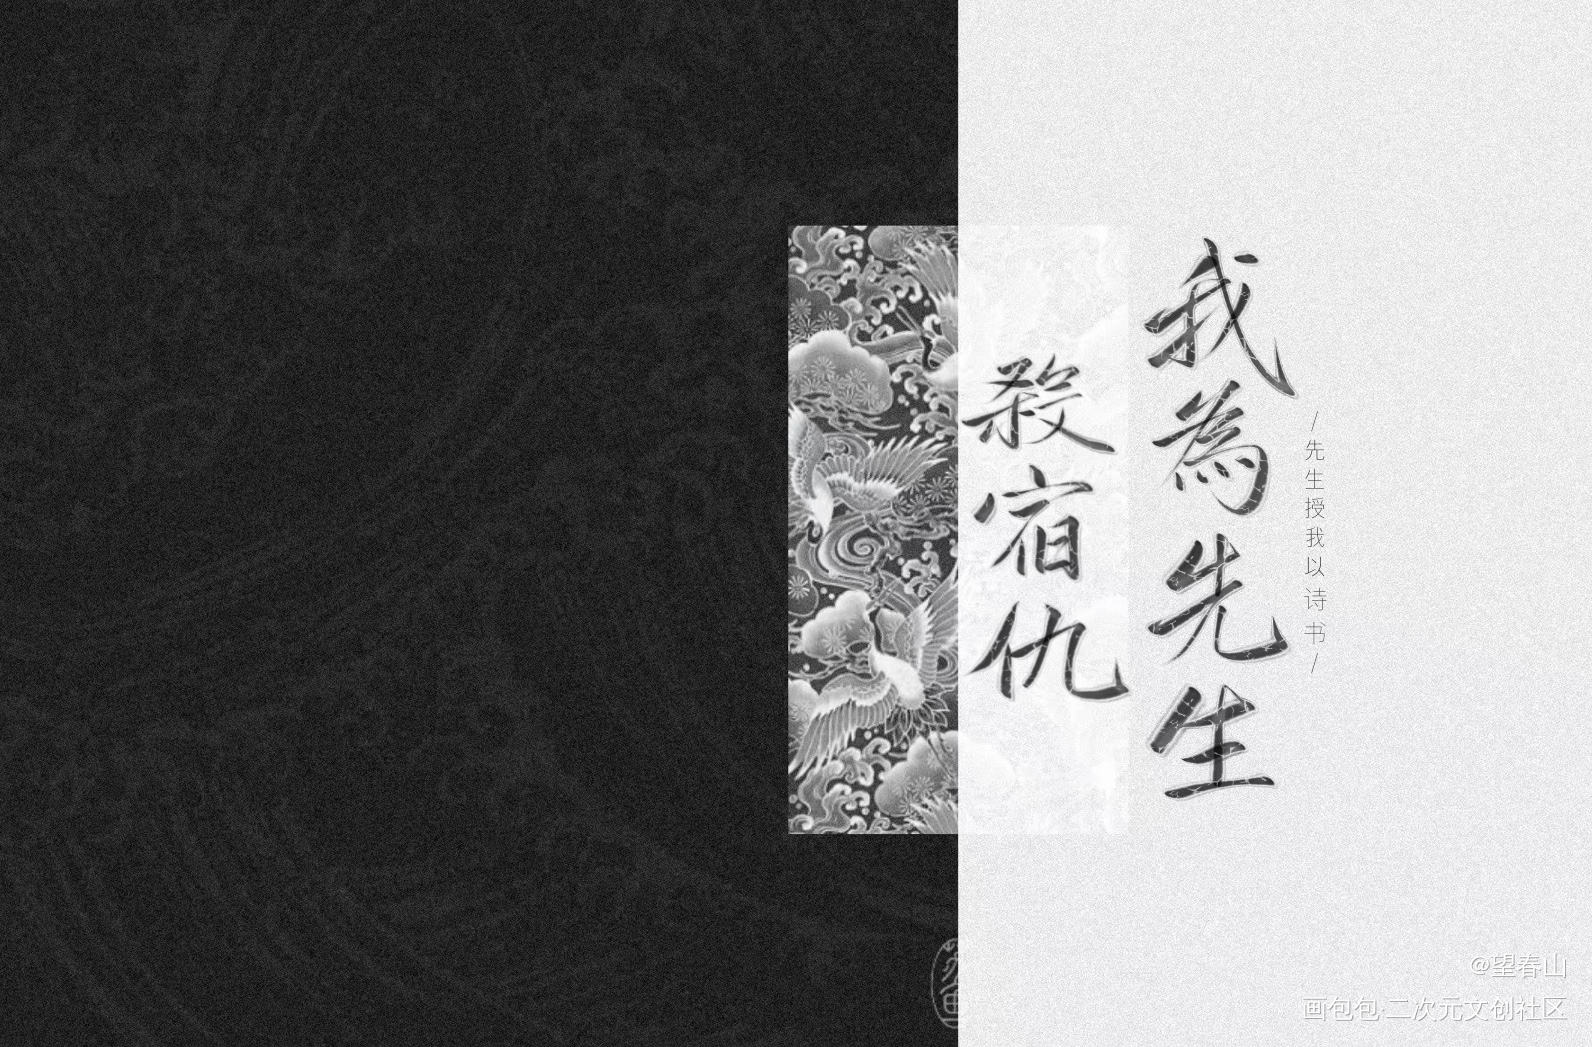 /先生授我以诗书/
我為先生
殺宿仇
@望春山
画包包·二次元文创社区